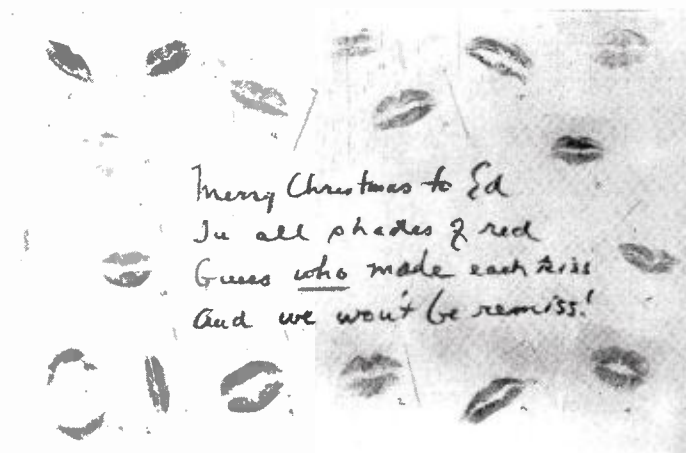 Merry Christmas to Ed
In all shades of red
Guess who made each kiss
And we won't be remiss!